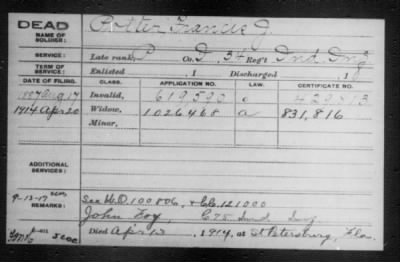 DEAD
NAME OF SOLDIER:
Potter Francis J.
SERVICE:
Late rank, P Co. D, 34 Reg't Ind. Inf
TERM OF SERVICE:
Enlisted , 1 Discharged , 1
DATE OF FILING. CLASS. APPLICATION NO. LAW. CERTIFICATE NO.
Aug 17 Invalid, 619,520
1914 Apr 20 Widow, 1026468 a 831,816
Minor,
ADDITIONAL SERVICES:
9-13-17
REMARKS: See W.O. 100806, + Ctf. 121000
John Foy, C 75 Ind Inf
Died Apr 12, 1914, at St Petersburg, Fla.